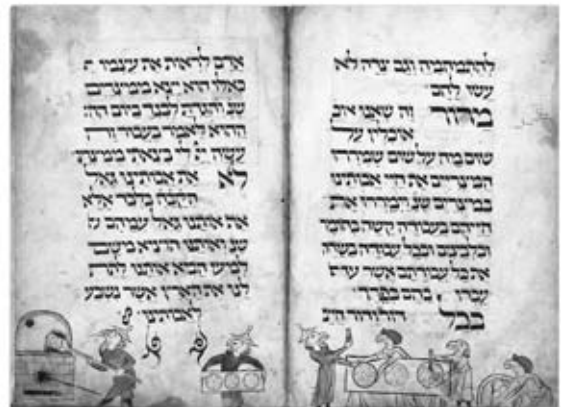 להתמהמה וגם צדה לא
עשו להם
מרור זה שאנו אוכ
אוכלין על
שום מה על שום שמררו
המצריים את חיי אבותינו
במצרים שנ וימררו את
חייהם בעבודה קשה בחומר
ובלבנים ובכל עבודה בשדה
את כל עבודתם אשר עבדו
עבדו בהם בפרך
בכל דור ודור חייב
אדם לראות את עצמו
כאלו הוא יצא ממצרים
שנ והגדת לבנך ביום הה
ההוא לאמר בעבור זה
עשה יי לי בצאתי ממצרי
לא את אבותינו גאל
הקבה בלבד אלא
אותנו גאל עמהם
שנ ואותנו הוציא משם
למען הביא אותנו לתת
לנו את הארץ אשר נשבע
לאבותינו